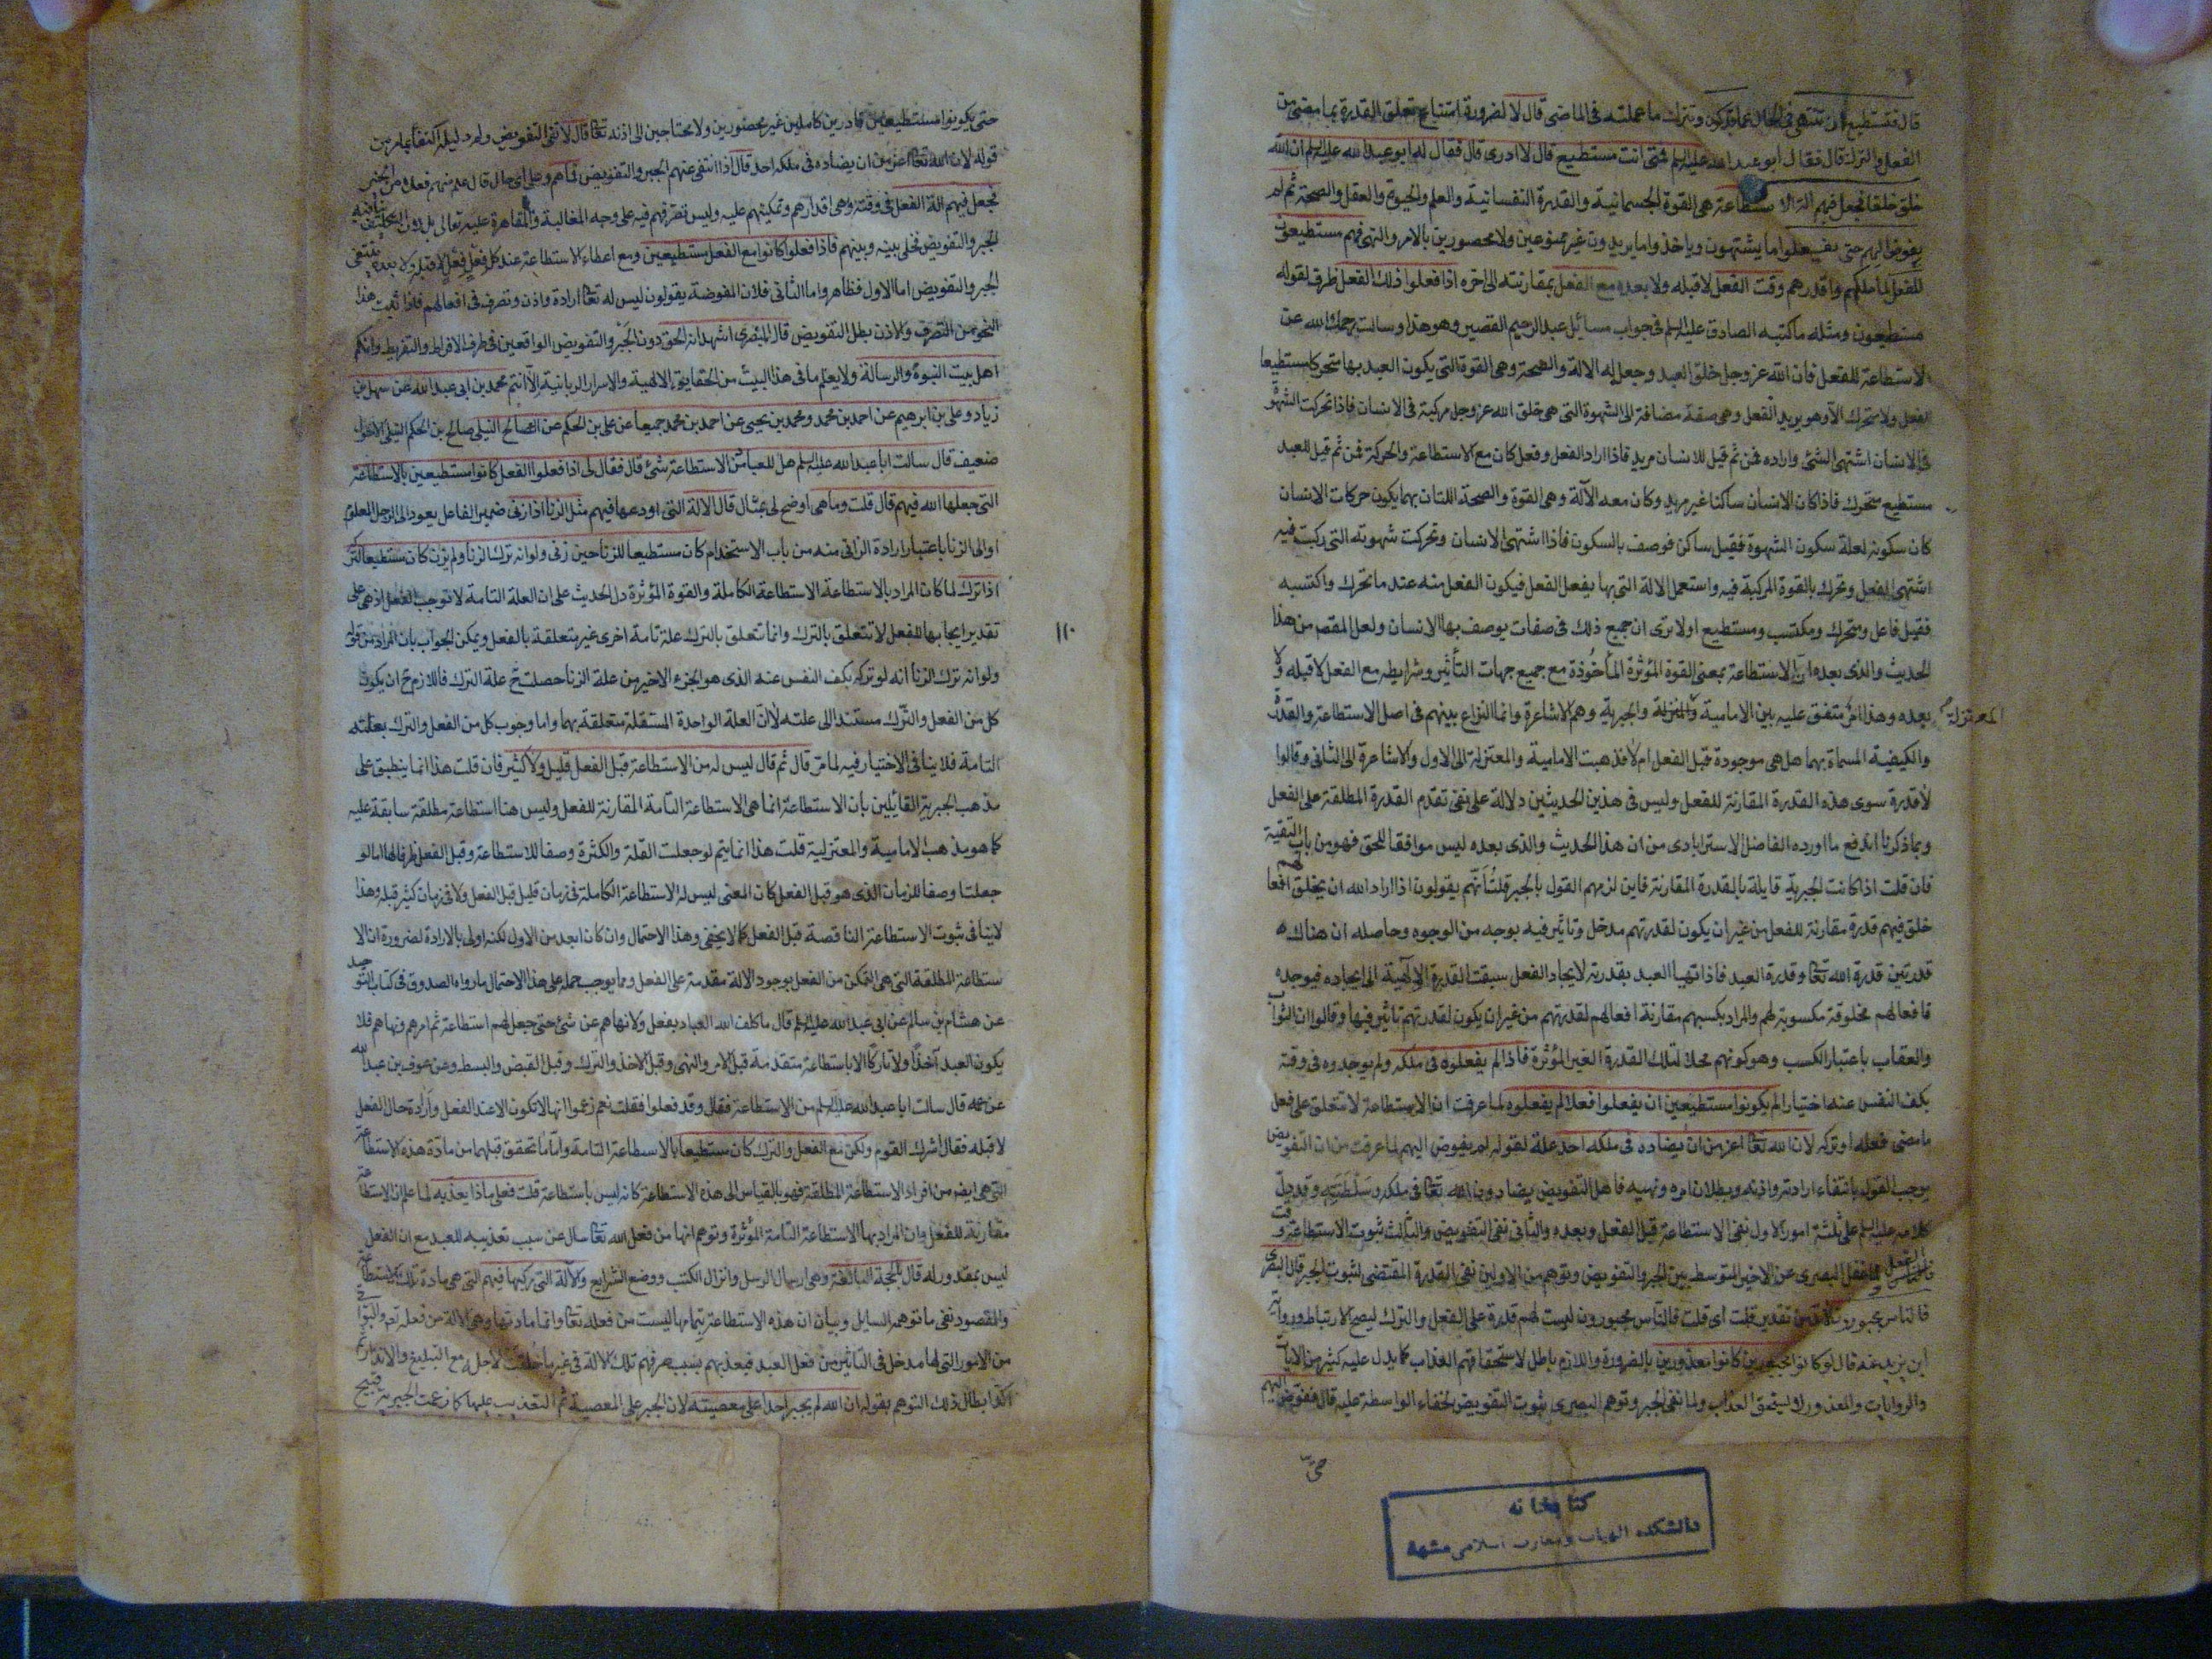 قال فتستطيع ان تنتهى فى الحال عما قد كون وتترك ما عملته فى الماضى قال لا لضرورة امتناع تعلق القدرة بما مضى من
الفعل والترك قال فقال ابو عبد الله عليه السلم فمتى انت مستطيع قال لا ادرى قال فقال له ابو عبد الله عليه السلم ان الله
خلق خلقا فجعل فيهم الة الاستطاعة هى القوة الجسمانية والقدرة النفسانية والعلم والحيوة والعقل والصحة ثم لم
يفوض اليهم حتى يفعلوا ما يشتهون وياخذوا ما يريدون غير ممنوعين ولا محصورين بالامر والنهى فهم مستطيعون
للفعل لما ملكهم واقدرهم وقت الفعل لا قبله ولا بعده مع الفعل بمقارنته الى اخره اذا فعلوا ذلك الفعل ظرف لقوله
مستطيعون ومثله ما كتبه الصادق عليه السلم فى جواب مسائل عبد الرحيم القصير وهو هذا وسالت رحمك الله عن
الاستطاعة للفعل فان الله عز وجل خلق العبد وجعل له الالة والصحة وهى القوة التى يكون العبد بها متحركا مستطيعا
للفعل ولا متحرك الا وهو يريد الفعل وهى صفة مضافة الى الشهوة التى هى خلق الله عز وجل مركبة فى الانسان فاذا تحركت الشهوة
فى الانسان اشتهى الشئ واراده فمن ثم قيل للانسان مريد فاذا اراد الفعل وفعل كان مع الاستطاعة والحركة فمن ثم قيل للعبد
مستطيع متحرك فاذا كان الانسان ساكنا غير مريد وكان معه الآلة وهى القوة والصحة اللتان بهما يكون حركات الانسان
كان سكونه لعلة سكون الشهوة فقيل ساكن فوصف بالسكون فاذا اشتهى الانسان وتحركت شهوته التى ركبت فيه
اشتهى الفعل وتحرك بالقوة المركبة فيه واستعمل الالة التى بها يفعل الفعل فيكون الفعل منه عند ما تحرك واكتسبه
فقيل فاعل ومتحرك ومكتسب ومستطيع اولا ترى ان جميع ذلك فى صفات يوصف بها الانسان ولعل المقصد من هذا
الحديث والذى بعده ان الاستطاعة بمعنى القوة المؤثرة المأخوذة مع جميع جهات التأثير وشرايطه مع الفعل لا قبله ولا
بعده وهذا امر متفق عليه بين الامامية والجبرية وهم الاشاعرة وانما النزاع بينهم فى اصل الاستطاعة والقدرة
المعتزلة
والكيفية المسماة بهما هل هى موجودة قبل الفعل ام لا فذهبت الامامية والمعتزلة الى الاول والاشاعرة الى الثانى وقالوا
لا قدرة سوى هذه القدرة المقارنة للفعل وليس فى هذين الحديثين دلالة على نفى تقدم القدرة المطلقة على الفعل
وبما ذكرنا اندفع ما اورده الفاضل الاسترابادى من ان هذا الحديث والذى بعده ليس موافقا للحق فهو من باب التقية
فان قلت اذا كانت الجبرية قايلة بالقدرة المقارنة فاين لزمهم القول بالجبر قلت انهم يقولون اذا اراد الله ان يخلق افعالهم
خلق فيهم قدرة مقارنة للفعل من غير ان يكون لقدرتهم مدخل وتاثير فيه بوجه من الوجوه وحاصله ان هناك
قدرتين قدرة الله تعا وقدرة العبد فاذا تهيا العبد بقدرته لايجاد الفعل سبقت القدرة الالهية الى ايجاده فيوجده
فافعالهم مخلوقة مكسوبة لهم والمراد بكسبهم مقارنة افعالهم لقدرتهم من غير ان يكون لقدرتهم تاثير فيها وقالوا ان الثواب
والعقاب باعتبار الكسب وهو كونهم محلا لتلك القدرة الغير المؤثرة فاذا لم يفعلوه فى ملكه ولم يوجدوه فى وقته
بكف النفس عنه اختيارا لم يكونوا مستطيعين ان يفعلوا فعلا لم يفعلوه لما عرفت ان الاستطاعة لا تتعلق على فعل
ما مضى فعله او تركه لان الله تعا اعز من ان يضاده فى ملكه احد علة لقوله لم يفوض اليهم لما عرفت من ان التفويض
يوجب القول بانتفاء ارادته واذنه وبطلان امره ونهيه فاهل التفويض يضادون الله تعا فى ملكه وسلطنته وقد دل
كلامه عليه السلم على ثلثة امور الاول نفى الاستطاعة قبل الفعل وبعده والثانى نفى التفويض والثالث ثبوت الاستطاعة وقت
الفعل البصرى عن الاخير المتوسط بين الجبر والتفويض وتوهم من الاولين نفى القدرة المقتضى لثبوت الجبر قال البصرى
فالناس مجبورون تقدير قلت اى قلت فالناس مجبورون ليست لهم قدرة على الفعل والترك ليصح الارتباط ورواية
ابن يزيد عنه قال لو كانوا مجبورين كانوا معذورين بالضرورة واللازم باطل لاستحقاقهم العذاب كما يدل عليه كثير من الايات
والروايات والمعذور لا يستحق العذاب ولما نفى الجبر وتوهم البصرى ثبوت التفويض لخفاء الواسطة عليه قال ففوض اليهم
حتى
كتابخانه
دانشكده الهيات ومعارف اسلامى مشهد
حتى يكونوا مستطيعين قادرين كاملين غير محصورين ولا محتاجين الى اذنه تعا قال لا نفى التفويض وله دليله اكتفا بما مر من
قوله لان الله تعا اعز من ان يضاده فى ملكه احد قال اذا انتفى عنهم الجبر والتفويض فما هم وعلى اى حال قال علم منهم فعلا
فجعل فيهم الة الفعل فى وقته وهى اقدارهم وتمكينهم عليه وليس تصرفهم فيه على وجه المغالبة والمقاهرة عليه تعالى بل
الجبر والتفويض فخلى بينه وبينهم فاذا فعلوا كانوا مع الفعل مستطيعين ومع اعطاء الاستطاعة عند كل فعل فعل لا قبله ولا بعده ينتفى
الجبر والتفويض اما الاول فظاهر واما الثانى فلان المفوضة يقولون ليس له تعا ارادة واذن وتصرف فى افعالهم فاذا ثبت هذا
النحو من التصرف والاذن بطل التفويض قال البصرى اشهد انه الحق دون الجبر والتفويض الواقعين فى طرف الافراط والتفريط وانكم
اهل بيت النبوة والرسالة ولا يعلم ما فى هذا البيت من الحقايق الالهية والاسرار الربانية الا انتم محمد بن ابى عبد الله عن سهل بن
زياد وعلى بن ابرهيم عن احمد بن محمد ومحمد بن يحيى عن احمد بن محمد جميعا عن على بن الحكم عن الصالح النيلى صالح بن الحكم النيلى الاحول
ضعيف قال سالت ابا عبد الله عليه السلم هل للعباد من الاستطاعة شئ قال فقال لى اذا فعلوا الفعل كانوا مستطيعين بالاستطاعة
التى جعلها الله فيهم قال قلت وما هى اوضح لى بمثال قال الالة التى اودعها فيهم مثل الزنا اذا زنى ضمير الفاعل يعود الى الرجل المعلوم
او الى الزنا باعتبار ارادة الزانى منه من باب الاستخدام كان مستطيعا للزنا حين زنى ولو انه ترك الزنا ولم يزن كان مستطيعا لتركه
اذا ترك لما كان المراد بالاستطاعة الاستطاعة الكاملة والقوة المؤثرة دل الحديث على ان العلة التامة لا توجب الفعل اذ هى على
تقدير ايجابها للفعل لا تتعلق بالترك وانما تتعلق بالترك علة تامة اخرى غير متعلقة بالفعل ويمكن الجواب بان المراد من قوله
١١٠
ولو انه ترك الزنا انه لو تركه بكف النفس عنه الذى هو الجزء الاخير من علة الزنا حصلت ح علة الترك فاللازم ح ان يكون
كل من الفعل والترك مستندا الى علته لا ان العلة الواحدة المستقلة متعلقة بهما واما وجوب كل من الفعل والترك بعلته
التامة فلا ينافى الاختيار فيه لما مر قال ثم قال ليس له من الاستطاعة قبل الفعل قليل ولا كثير فان قلت هذا انما ينطبق على
مذهب الجبرية القائلين بان الاستطاعة انما هى الاستطاعة التامة المقارنة للفعل وليس هنا استطاعة مطلقة سابقة عليه
كما هو مذهب الامامية والمعتزلية قلت هذا انما يتم لو جعلت القلة والكثرة وصفا للاستطاعة وقبل الفعل ظرفا لها اما لو
جعلتا وصفا للزمان الذى هو قبل الفعل كان المعنى ليس له الاستطاعة الكاملة فى زمان قليل قبل الفعل ولا فى زمان كثير قبله وهذا
لا ينافى ثبوت الاستطاعة الناقصة قبل الفعل كما لا يخفى وهذا الاحتمال وان كان ابعد من الاول لكنه اولى بالارادة لضرورة ان الا
ستطاعة المطلقة التى هى التمكن من الفعل بوجود الالة مقدمة على الفعل ومما يوجب حمله على هذا الاحتمال ما رواه الصدوق فى كتاب التوحيد
عن هشام بن سالم عن ابى عبد الله عليه السلم قال ما كلف الله العباد بفعل ولا نهاهم عن شئ حتى جعل لهم استطاعة ثم امرهم ونهاهم فلا
يكون العبد آخذا ولا تاركا الا باستطاعة متقدمة قبل الامر والنهى وقبل الاخذ والترك وقبل القبض والبسط وعن عوف بن عبد الله
عن عمه قال سالت ابا عبد الله عليه السلم من الاستطاعة فقال وقد فعلوا فقلت نعم زعموا انها لا تكون الا عند الفعل وارادة حال الفعل
لا قبله فقال اشرك القوم ولكن مع الفعل والترك كان مستطيعا بالاستطاعة التامة واما ما تحقق قبلهما من مادة هذه الاستطاعة
التى هى ايضا من افراد الاستطاعة المطلقة فهو بالقياس الى هذه الاستطاعة كانه ليس باستطاعة قلت فعلى ماذا يعذبه لما علم ان الاستطاعة
مقارنة للفعل وان المراد بها الاستطاعة التامة المؤثرة وتوهم انها من فعل الله تعا سال عن سبب تعذيبه للعبد مع ان الفعل
ليس بمقدور له قال بالحجة البالغة وهى ارسال الرسل وانزال الكتب ووضع الشرايع والآلة التى ركبها فيهم التى هى مادة تلك الاستطاعة
والمقصود نفى ما توهمه السايل وبيان ان هذه الاستطاعة بتمامها ليست من فعله تعا وانما مادتها وهى الالة من فعله تعا والبواقى
من الامور التى لها مدخل فى التاثير من فعل العبد فيعذبهم بسبب صرفهم تلك الالة فى غير ما خلقت لاجله مع التبليغ والانذار ثم
اكد ابطال ذلك التوهم بقوله ان الله لم يجبر احدا على معصيته لان الجبر على المعصية ثم التعذيب عليها كما زعمت الجبرية قبيح